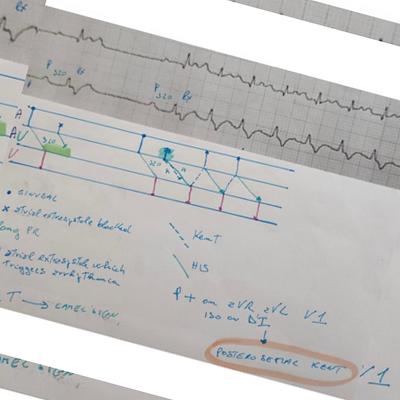 Rf
P 320 Rf
P 320 Rf
A
AV
V
320
320
• SINUSAL
x atrial extrasystole blocked
long PR
atrial extrasystole which
triggers arrhythmia
T → CAMEL SIGN
Kent
HIS
P + on aVR, aVL V1
ISO on DI
POSTEROSEPTAL KENT